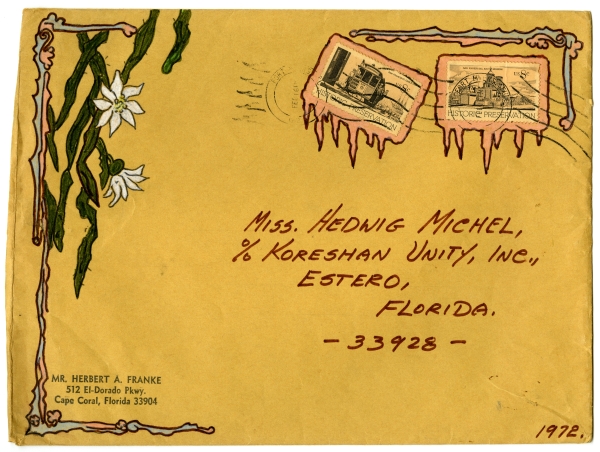 HISTORIC PRESERVATION
HISTORIC PRESERVATION
Miss. Hedwig Michel,
c/o Koreshan Unity, Inc.,
Estero,
Florida.
- 33928 -
MR. HERBERT A. FRANKE
512 El-Dorado Pkwy.
Cape Coral, Florida 33904
1972.